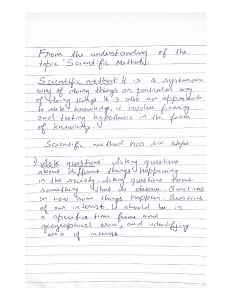 From the understanding of the
topic Scientific Method.
Scientific method: It is a systematic
way of doing things or particular way
of doing things. It is also an approach
to seek knowledge, it involve forming
and testing hypothesis in the form
of knowledge.
Scientific method has six steps:
1) Ask questions: Asking questions
about different things happening
in the society. Asking questions about
something that we observe. Questions
on how some things happen. Questions
of our interest. It should be in
a specific time frame and
geographical area, and identifying
area of interest.